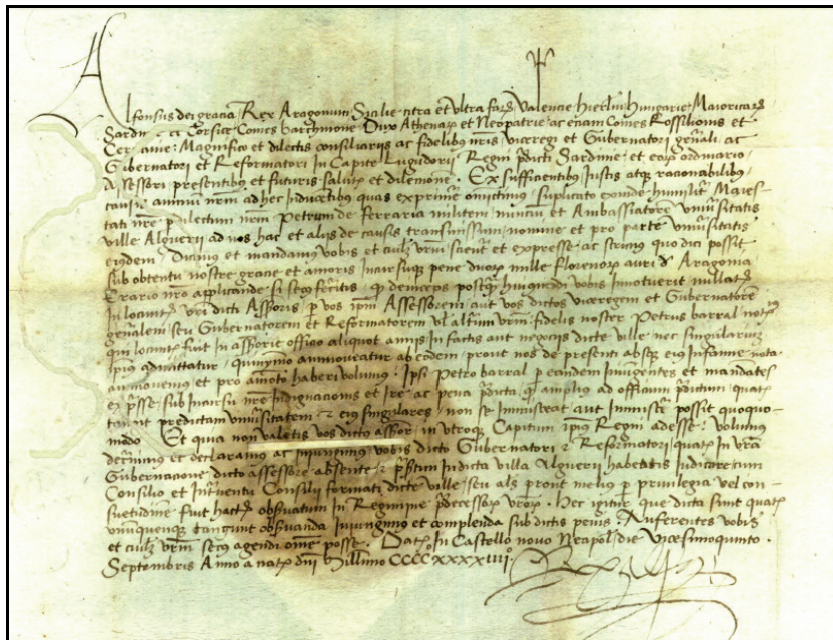 Alfonsus dei gracia Rex Aragonum Sicilie citra et ultra fars Valencie Hierlm Hungarie Maioricars
Sardin et Corsice Comes barchinone Dux Athenars et Neopatrie ac eciam Comes Rossilionis et
Magnifico et dilectis consiliarijs ac fidelibus nris viceregi et Gubernatori gnali ac
Gubernatori et Reformatori In Capite lugudorij Regni pdicti Sardinie et ordinario
Assessori presentibus et futuris salutem et dilemone. Ex sufficentibus Iustis atq racionabilibus
causis animum nrm ad hec inducentibus quas exprimere omictimus suplicato exinde humilit Maies
tati nre p dilectum nrm Petrum de ferraria militem nunciu et Ambassiatore vniusitatis
ville Alguerii ad nos hac et alijs de causis transmissum nomine et pro parte vniusitatis
eiusdem Dicimus et mandamus vobis et vrm scient et expresse ac quo dici possit
sub obtentu nostre gracie et amoris pene duors mille florenors auri d Aragonia
Erario nro applicande si secus feceritis deinceps vobis innotuerit
In locuntes vri dicti Assoris p vos ipm Assessorem aut vos dictos viceregem et Gubernatore
generalem seu Gubernatorem et Reformatorem vl vrm fidelis noster Petrus barral
qui fuit in assorie officio aliquot annis In factis aut negocijs dicte ville nec singularium
Ipius admittatur quinymo ammoueatur ab eodem prout nos de presenti absq eius infamie nota
ammouemus et pro amoto haberi volumus Ipsi Petro barral p eandem iniungentes et mandates
ex pnse sub incursu nre indignacionis et Ire ac pena pdicta amplius ad officium pdictum
tangit predictam vniusitatem et eius singulares non se inmisceat aut possit quoquo
modo Et quia non valetis vos dicto assor in vtroq Capitum Ipius Regni adesse volumus
decernimus ac declaramus ac iniungimus vobis dicto Gubernatori et Reformatori In vra
Gubernacione dicto assessore absente et In dicta villa Alguerii habeatis Iudicare cum
Consilio et Interuentu Consilii formati dicte ville seu als prout melius p privilegia vel con
suetudine fuit obseruatum In Regimine pdecessors vrors. Hec igitur que dicta sunt
vnuquenque tangunt obseruanda iniungimus et complenda sub dictis penis. Auferentes vobis
et vrm secus agendi omne posse. In Castello novo Neapol die vicesimoquinto.
Septembris Anno a nat dni Millimo CCCCXXXXIIII